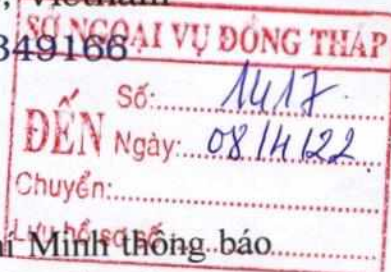 , Vietnam
349166
SỞ NGOẠI VỤ ĐỒNG THÁP
ĐẾN
Số: 1417
Ngày: 08/4/22
Chuyển:
Lưu hồ sơ số:
hí Minh thông báo